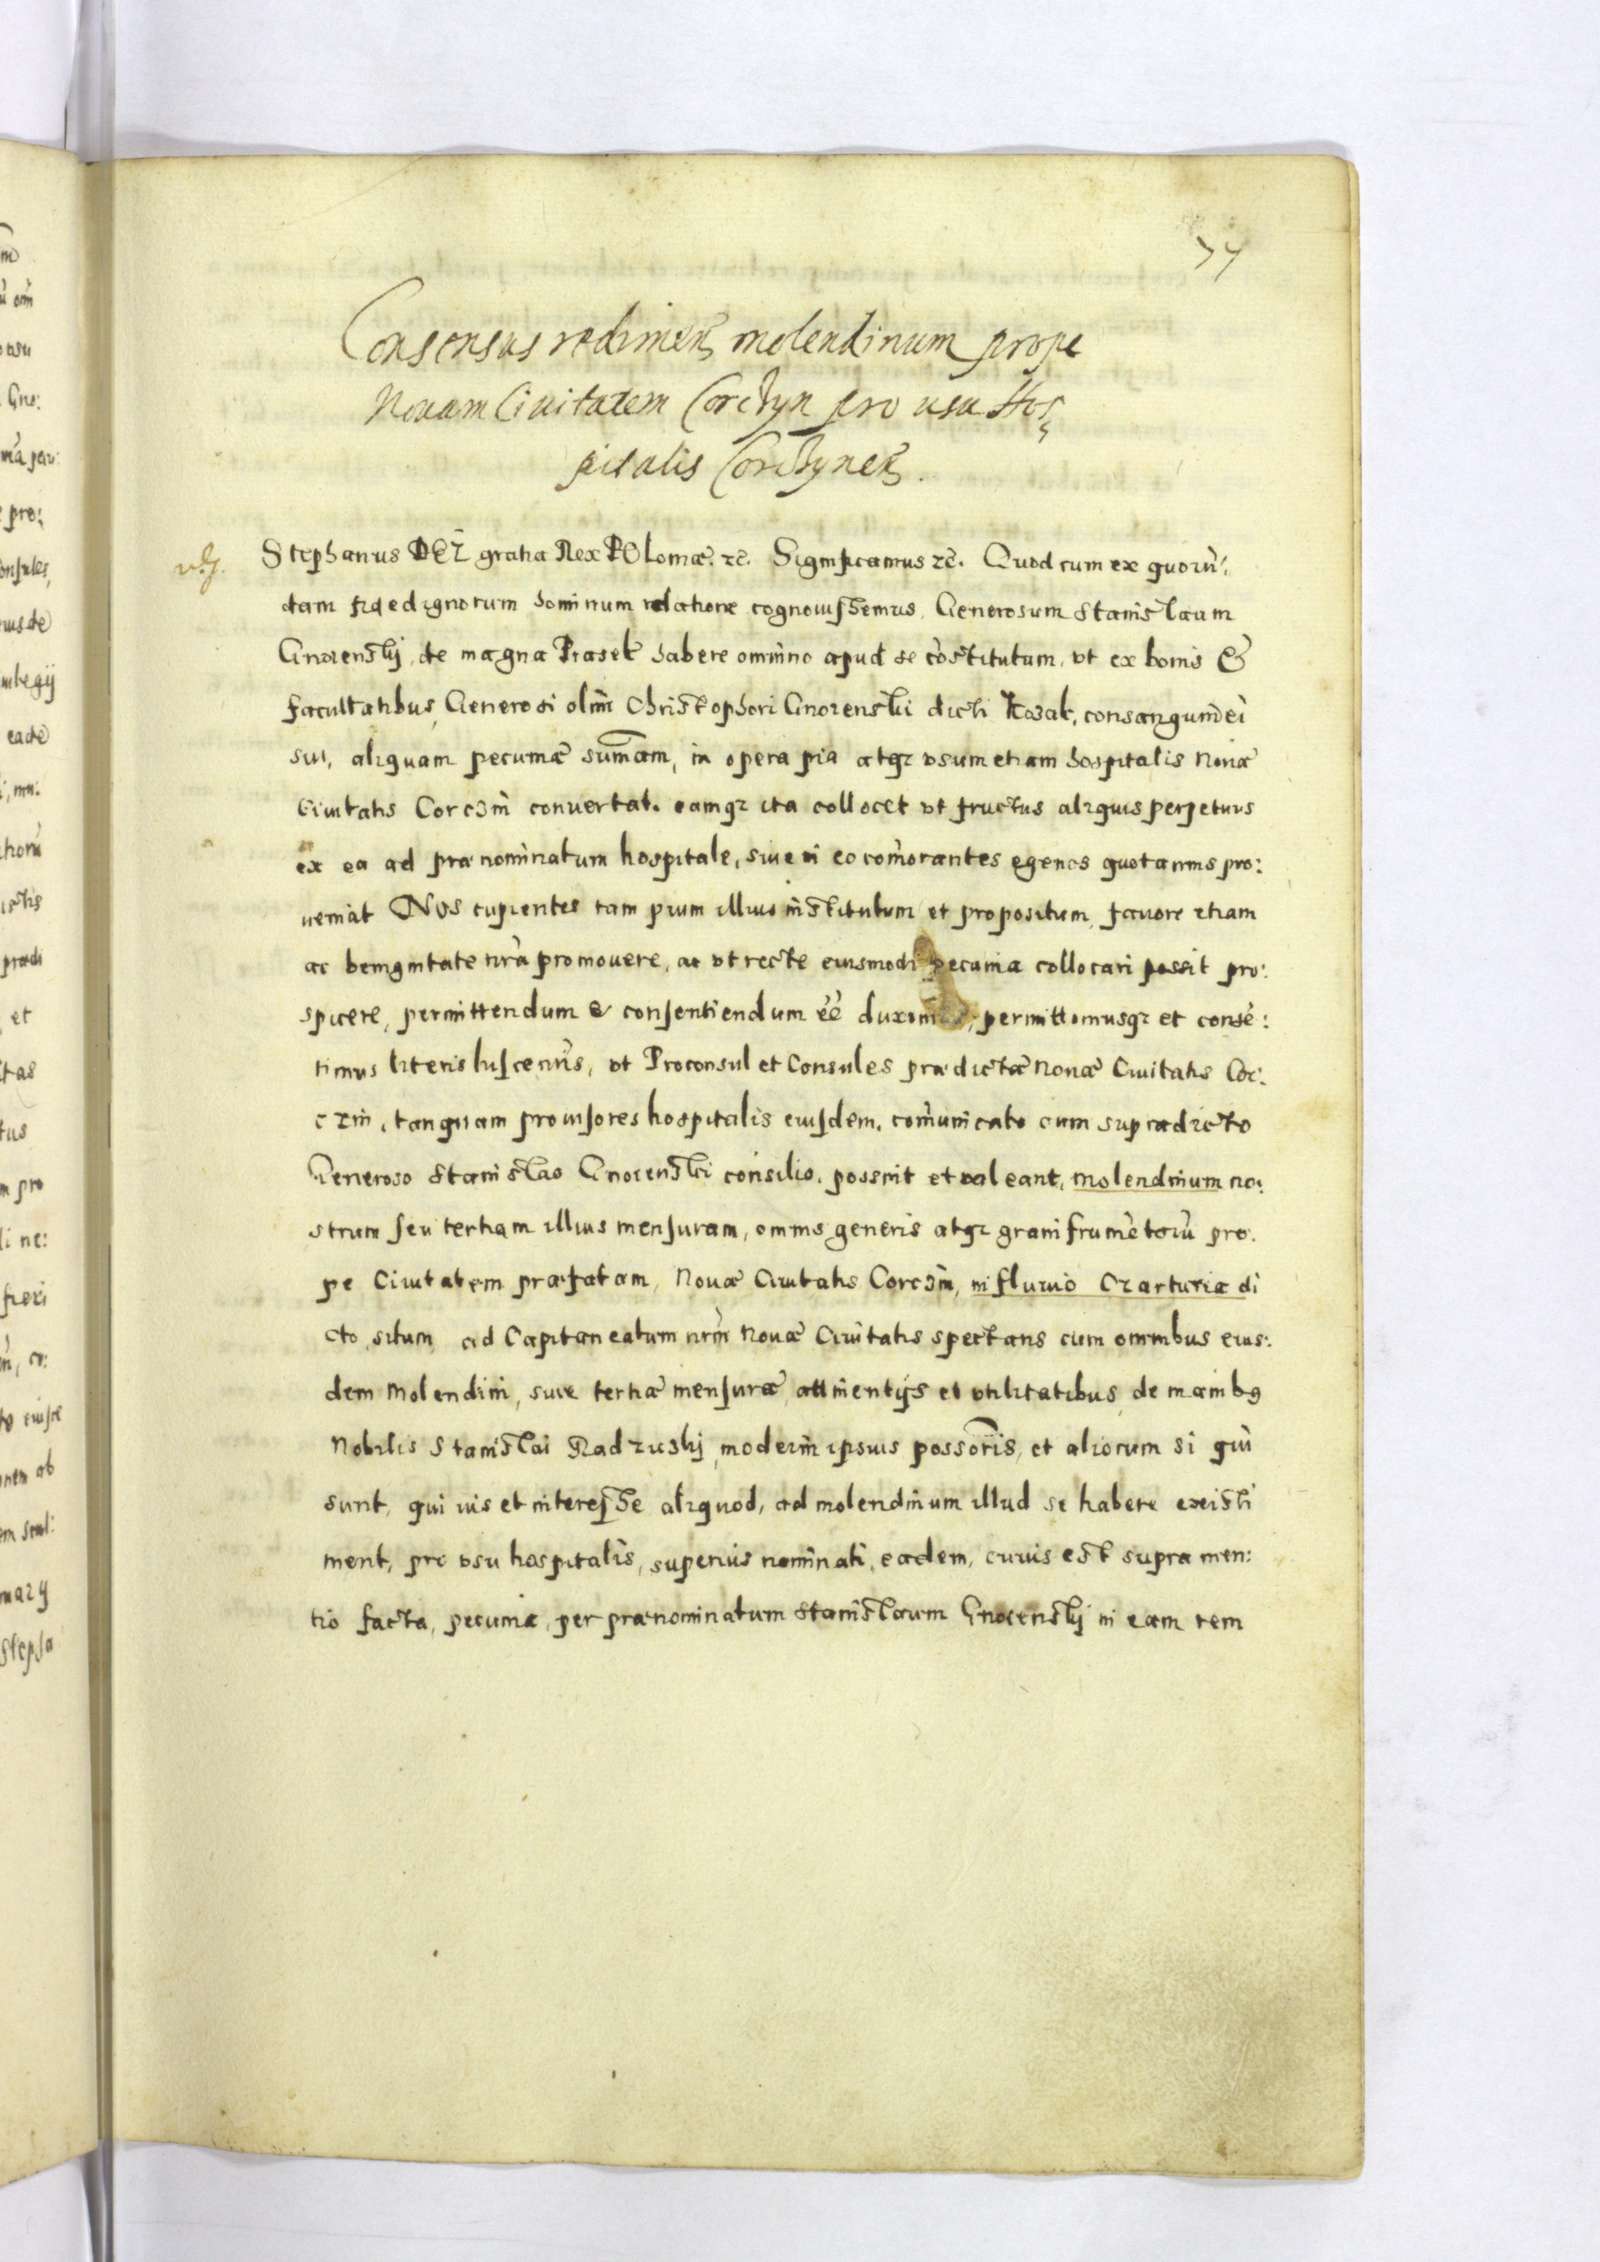 74
Consensus redimen molendinum prope
Nouam Ciuitatem Corczyn pro usu Hos
pitalis Corczynen.
Stephanus DEI gratia Rex POloniæ. zc. Significamus zc. Quod cum ex quorū:
dam fide dignorum hominum relatione cognouissemus, Generosum Stanislaum
Gnoienskij, de magna Prasek habere omnino apud se cōstitutum, vt ex bonis &
facultatibus, Generosi olim Christophori Gnoienskii dicti Kozak, consanguinei
sui, aliquam pecuniæ sum̄am, in opera pia atqz vsum etiam hospitalis Nouæ
Ciuitatis Corczin conuertat. eamqz ita collocet vt fructus aliquis perpetuus
ex ea ad prænominatum hospitale, siue in eo com̄orantes egenos quotannis pro:
ueniat Nos cupientes tam pium illius institutum et propositum, fauore etiam
ac benignitate nr̄a promouere, ac vt recte eiusmodi pecunia collocari possit pro:
spicere, permittendum & consentiendum eē duximus, permittimusqz et consē:
timus literis hisce nr̄is, vt Proconsul et Consules prædictæ Nouæ Ciuitatis Cor:
czin, tanquam prouisores hospitalis eiusdem, com̄unicato cum supradicto
Generoso Stanislao Gnoienski consilio, possint et valeant, molendinum no:
strum seu tertiam illius mensuram, omnis generis atqz grani frumētorū pro:
pe Ciuitatem præfatam, Nouæ Ciuitatis Corczin, in fluuio Czarturia di
cto, situm, ad Capitaneatum nrm̄ Nouæ Ciuitatis spectans cum omnibus eius:
dem Molendini, siue tertiæ mensuræ, attinentijs et vtilitatibus, de manibꝫ
Nobilis Stanislai Radziczkj, moderni ipsius possoris, et aliorum si qui
sunt, qui ius et interesse aliquod, ad molendinum illud se habere existi
ment, pro vsu hospitalis, superius nominati, eadem, cuius est supra men:
tio facta, pecunia, per prænominatum Stanislaum Gnoienskij in eam rem